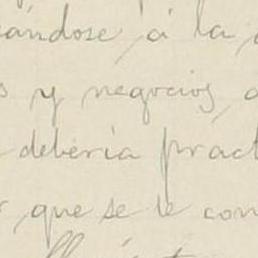 ándose, á la
s y negocios,
debería pract
que se le con